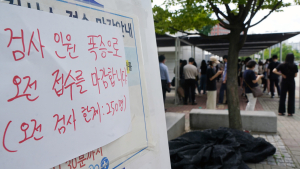 검사 인원 폭증으로
오전 접수를 마감합니다
(오전 검사 한계: 250명)